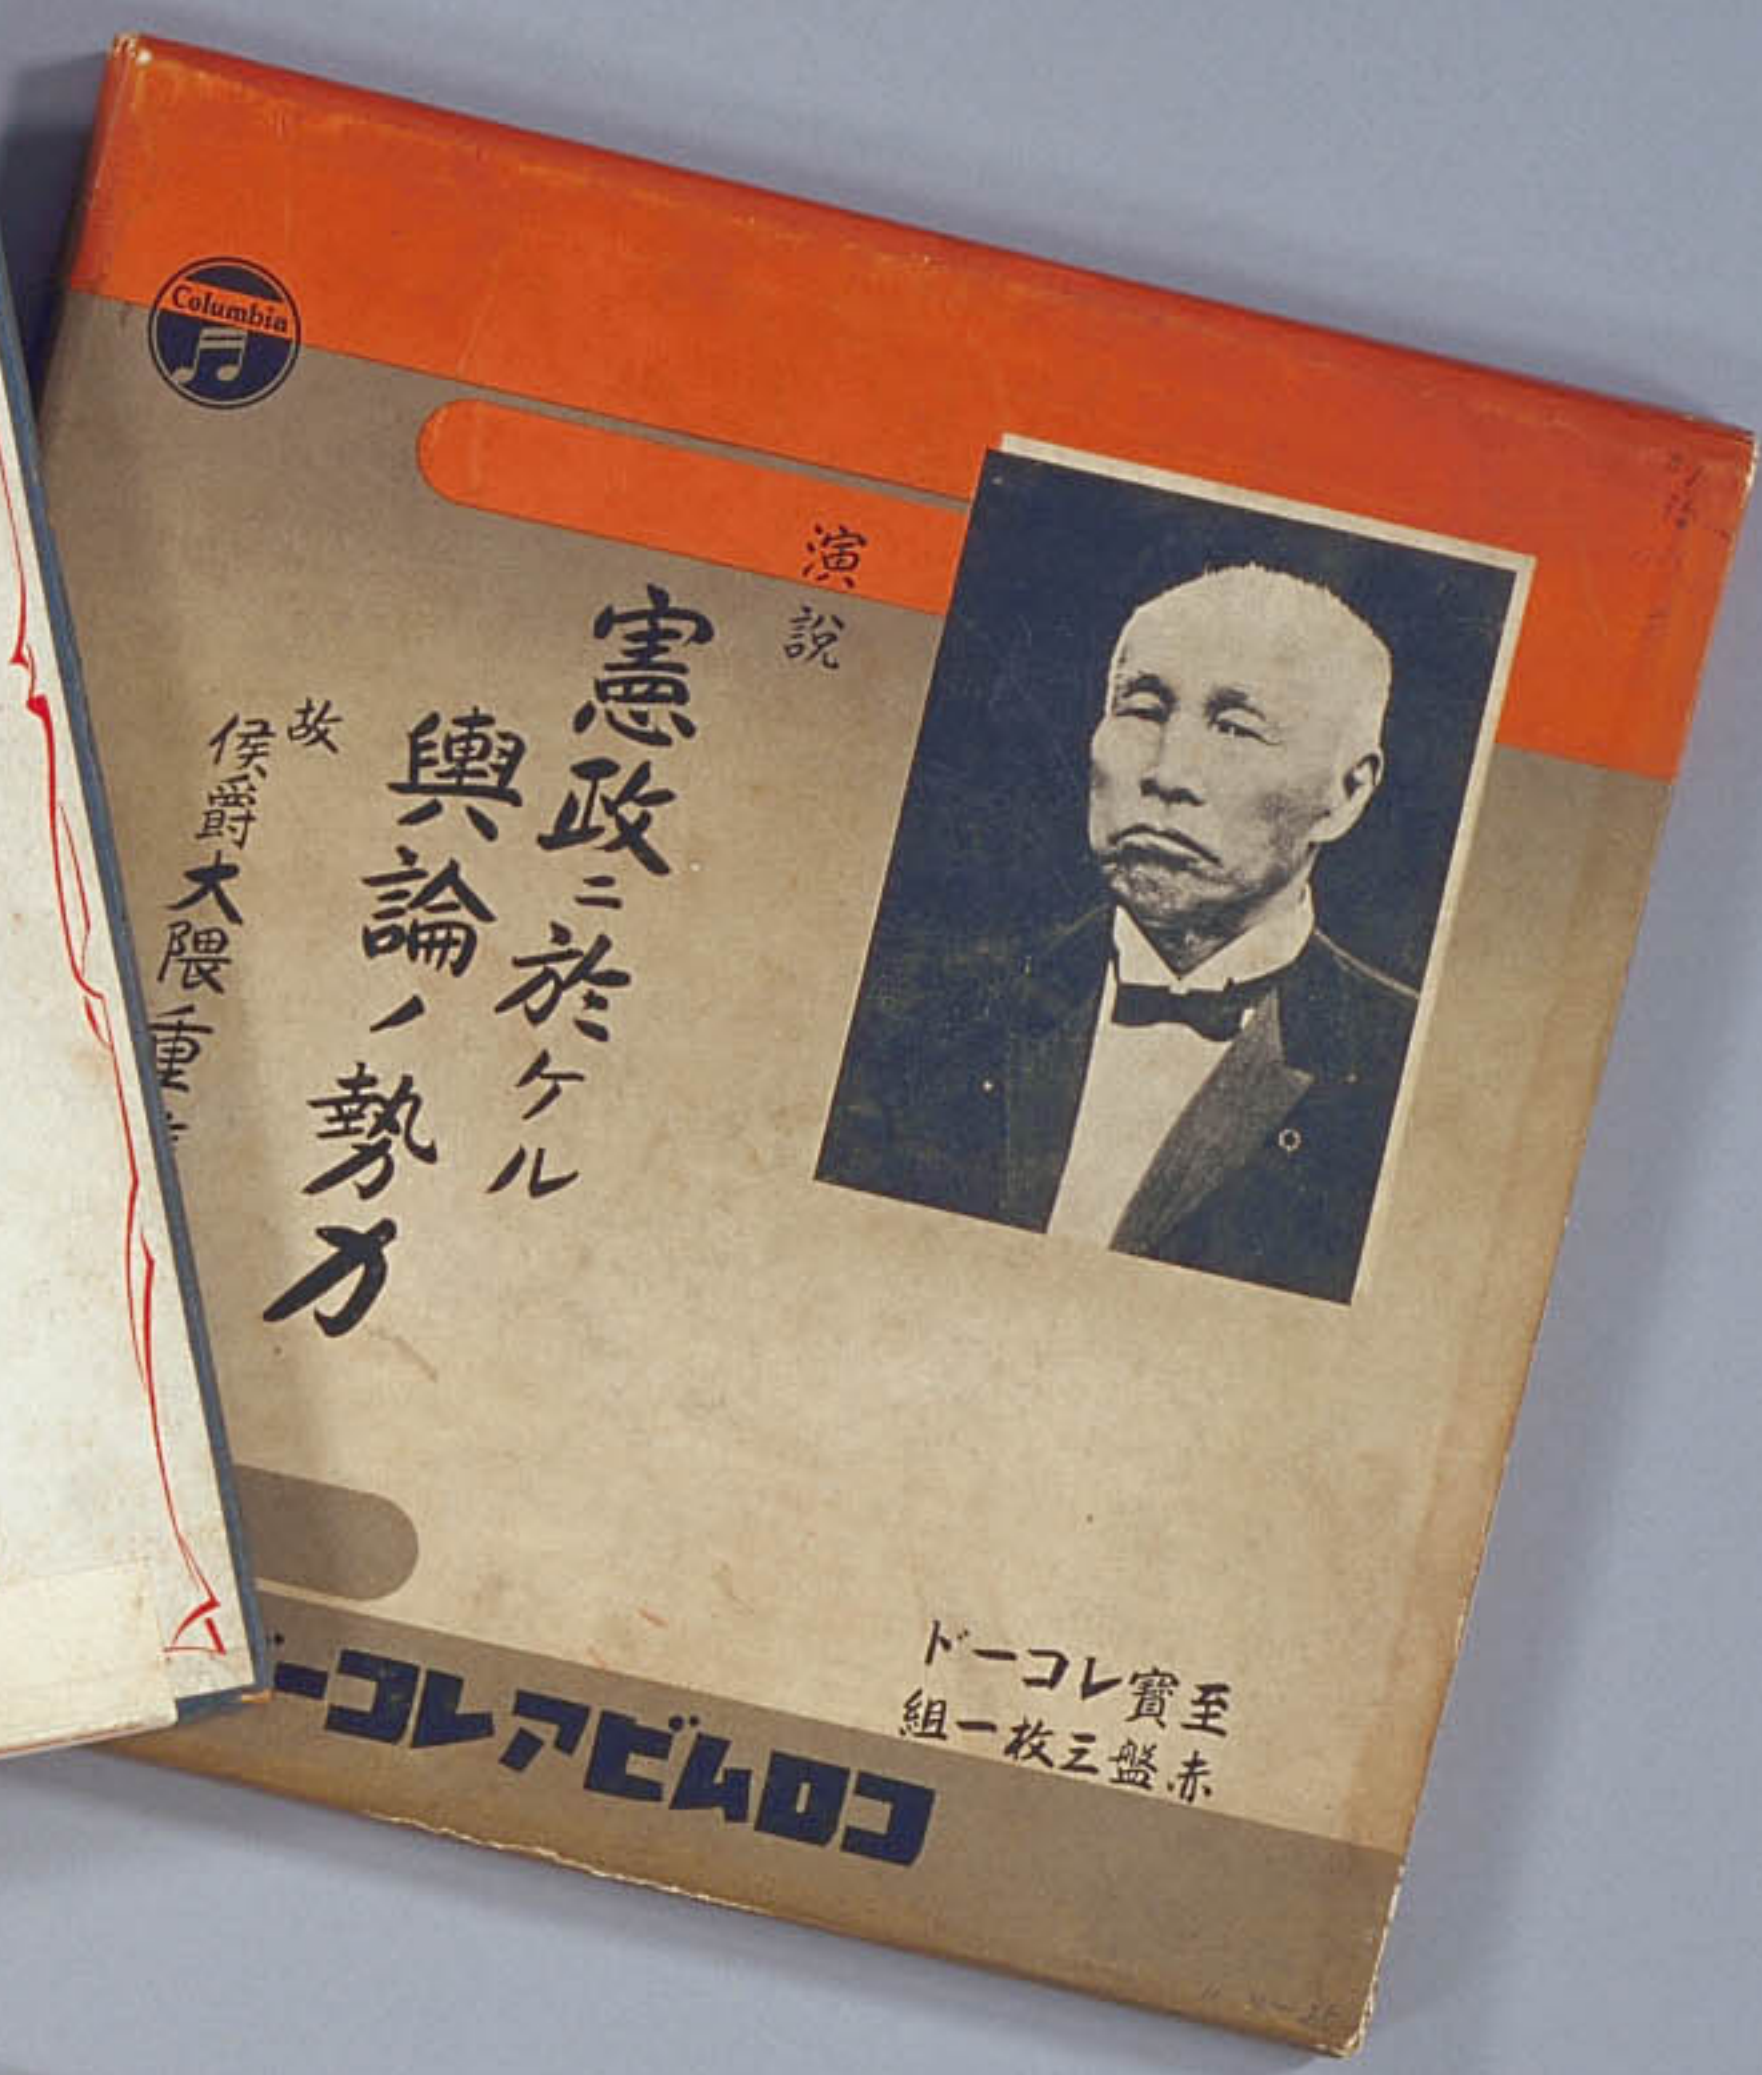 Columbia
演説
憲政ニ於ケル
輿論ノ勢力
故
侯爵大隈重
至寶レコード
赤盤三枚一組
コロムビアレコー